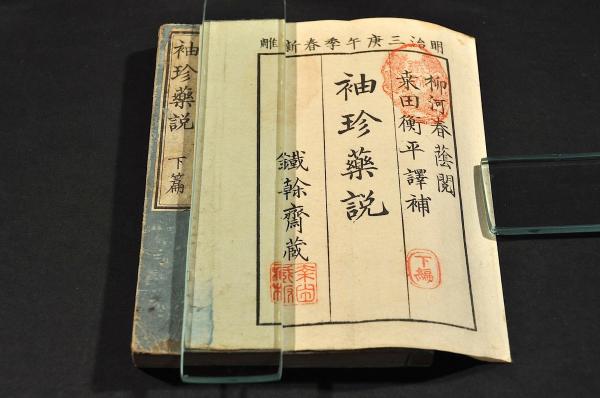 明治三庚午季春新雕
柳河春蔭閲
桒田衡平譯補
下編
袖珍藥説
鐵榦齋藏
袖珍藥説
下篇